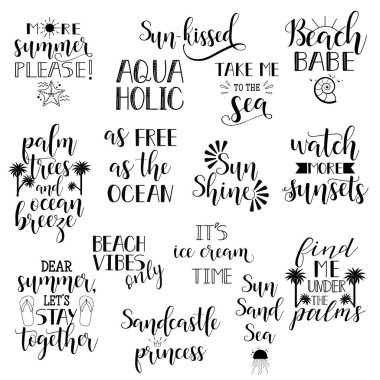 MORE
summer
PLEASE!
Sun-kissed
Beach
BABE
AQUA
HOLIC
TAKE ME
TO THE
sea
palm
trees
and
ocean
breeze
as FREE
as the
OCEAN
Sun
Shine
watch
MORE
sunsets
BEACH
VIBES
only
IT'S
ice cream
TIME
find
ME
UNDER
THE
palms
DEAR
summer,
LET'S
STAY
together
Sandcastle
princess
Sun
Sand
Sea